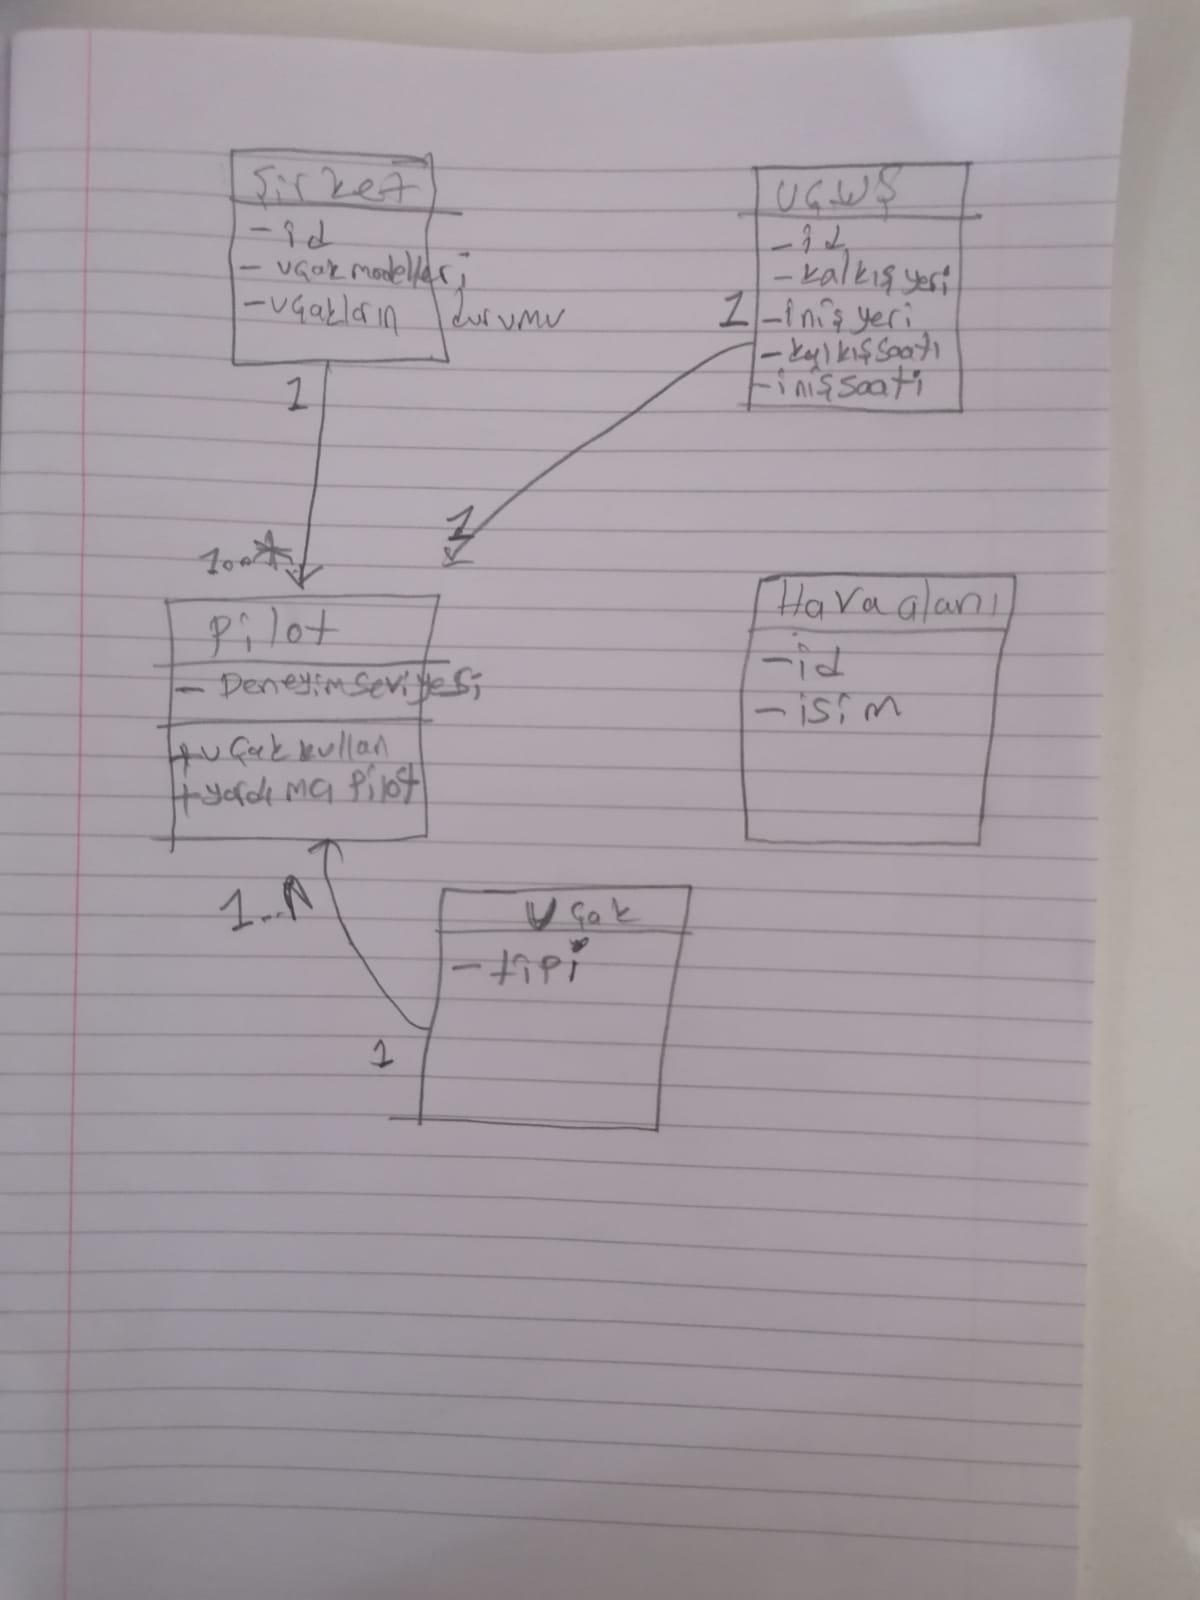 Şirket
- id
- uçak modelleri
- uçakların durumu
1
1..*
uçuş
- id
- kalkış yeri
- iniş yeri
- kalkış saati
- iniş saati
1
1
Pilot
- Deneyim seviyesi
+ uçak kullan
+ yardımcı pilot
Havaalanı
- id
- isim
1..n
1
Uçak
- tipi